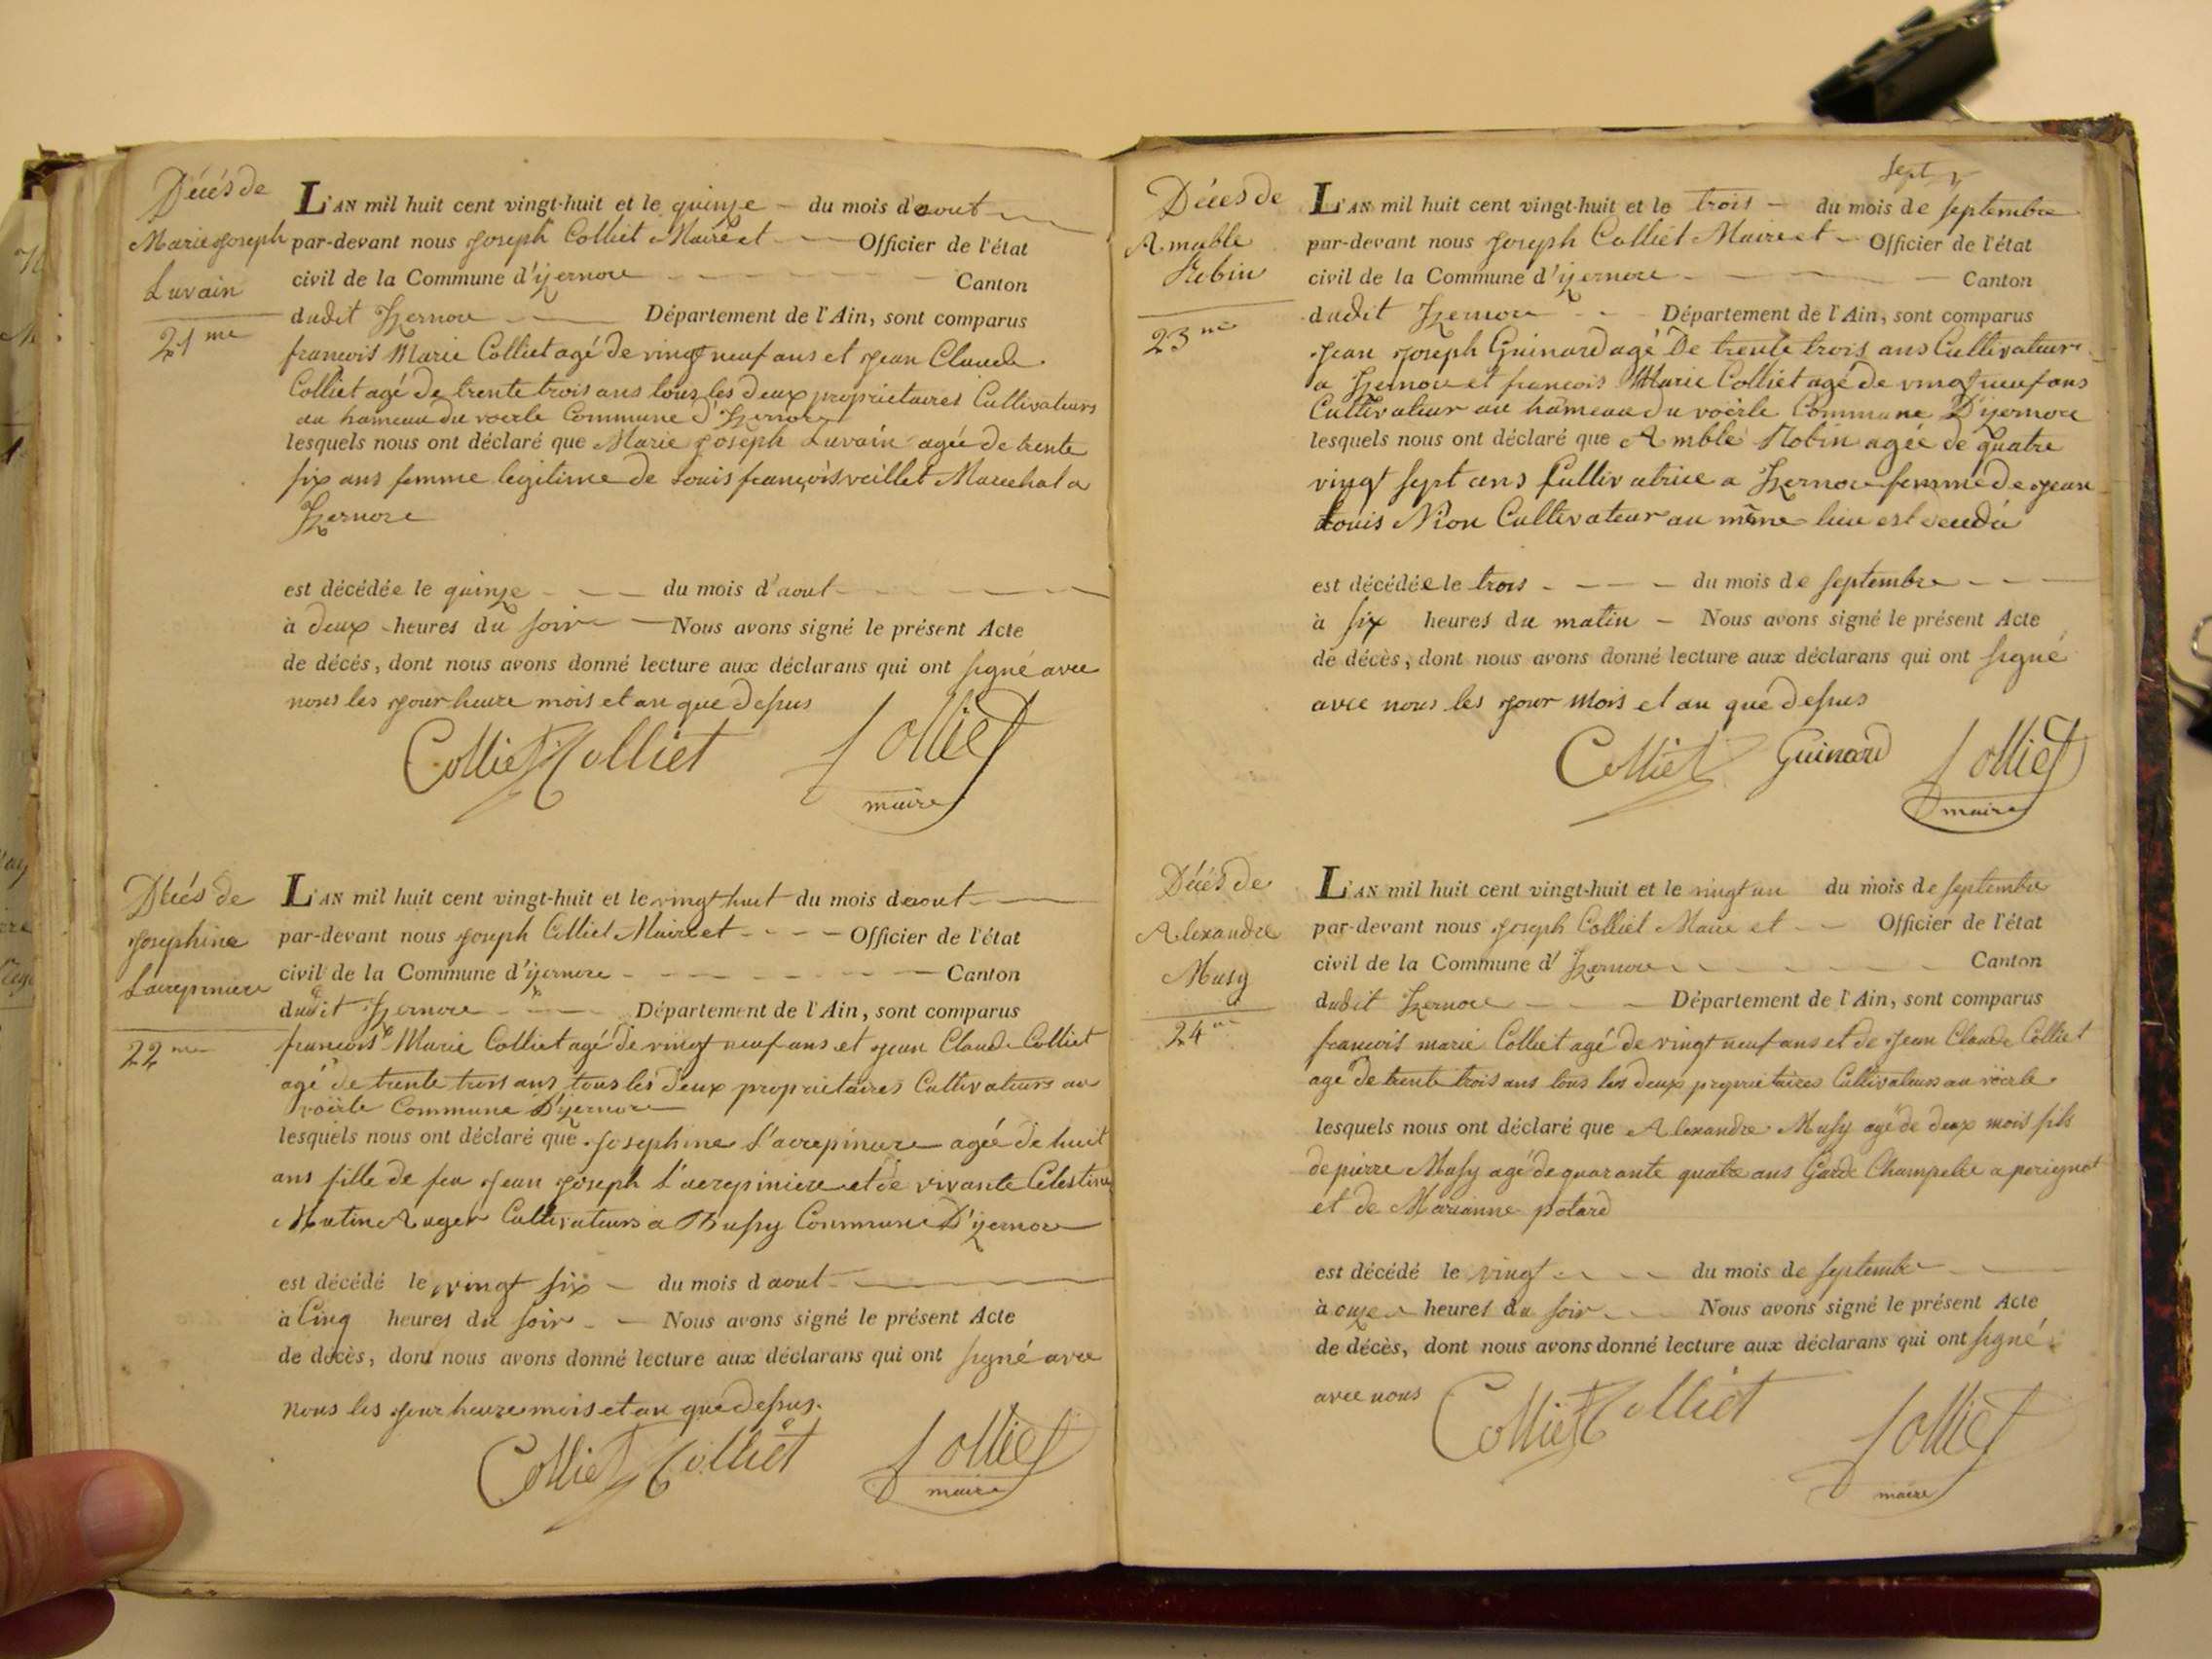 Décés de
Marie Joseph
Luvain
21me
L'AN mil huit cent vingt-huit et le quinze du mois d'aout
par-devant nous Joseph Colliet Maire et Officier de l'état
civil de la Commune d'izernore Canton
dudit Izernore Département de l'Ain, sont comparus
francois Marie Colliet agé de vingt neuf ans et Jean Claude
Colliet agé de trente trois ans tous les deux propriétaires Cultivateurs
au hameau du voerle Commune d'Izernore
lesquels nous ont déclaré que Marie Joseph Luvain agée de trente
six ans femme legitime de Louis françois veillet Marechal a
Izernore
est décédée le quinze du mois d'aout
à deux heures du soir Nous avons signé le présent Acte
de décès, dont nous avons donné lecture aux déclarans qui ont signé avec
nous les jour heure mois et an que dessus
Colliet Colliet J Colliet
maire
Décés de
Josephine
Lacrepiniere
22me
L'AN mil huit cent vingt-huit et le vingt huit du mois daout
par-devant nous Joseph Colliet Maire et Officier de l'état
civil de la Commune d'izernore Canton
dudit Izernore Département de l'Ain, sont comparus
francois Marie Colliet agé de vingt neuf ans et Jean Claude Colliet
agé de trente trois ans tous les deux propriétaires Cultivateurs au
voërle Commune D'izernore
lesquels nous ont déclaré que Josephine L'acrepiniere agée de huit
ans fille de feu Jean Joseph L'acrepiniere et de vivante Célestine
Mutin Auger Cultivateurs a Bussy Commune D'izernore
est décédé le vingt six du mois d aout
à Cinq heures du soir Nous avons signé le présent Acte
de décès, dont nous avons donné lecture aux déclarans qui ont signé avec
nous les jour heure mois et an que dessus.
Colliet Colliet J Colliet
maire
Sept
Décés de
Amable
Robin
23me
L'AN mil huit cent vingt-huit et le trois du mois de septembre
par-devant nous Joseph Colliet Maire et Officier de l'état
civil de la Commune d'izernore Canton
dudit Izernore Département de l'Ain, sont comparus
Jean Joseph Guinard agé De trente trois ans Cultivateur
a Izernore et francois Marie Colliet agé de vingt neuf ans
Cultivateur au hameau du voërle Commune D'izernore
lesquels nous ont déclaré que Amble Robin agée de quatre
vingt sept ans Cultivatrice a Izernore femme de Jean
Louis Nion Cultivateur au même lieu est
est décédée le trois du mois de septembre
à six heures du matin Nous avons signé le présent Acte
de décès, dont nous avons donné lecture aux déclarans qui ont signé
avec nous les jour mois et an que dessus
Colliet Guinard J Colliet
maire
Décés de
Alexandre
Musy
24me
L'AN mil huit cent vingt-huit et le vingt un du mois de septembre
par-devant nous Joseph Colliet Maire et Officier de l'état
civil de la Commune d' Izernore Canton
dudit Izernore Département de l'Ain, sont comparus
francois marie Colliet agé de vingt neuf ans et de Jean Claude Colliet
agé de trente trois ans tous les deux proprietaires Cultivateurs au voërle
lesquels nous ont déclaré que Alexandre Musy agé de deux mois fils
de pierre Musy agé de quarante quatre ans Garde Champetre a perignat
et de Marianne potard
est décédé le vingt du mois de septembre
à onze heures du soir Nous avons signé le présent Acte
de décès, dont nous avons donné lecture aux déclarans qui ont signé
avec nous
Colliet Colliet J Colliet
maire